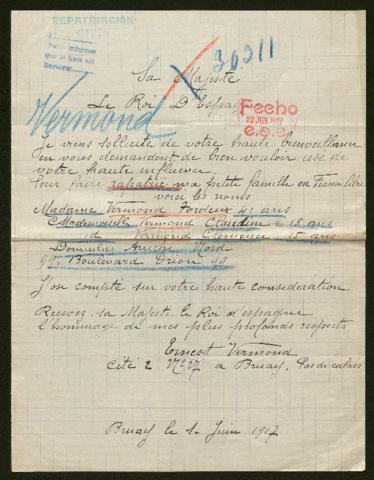 REPATRIACIÓN
CIVIL
que se hace en
30211
Sa Majesté
Le Roi D'Espagne
Fecho
22 JUN 1917
Vermond
Je viens sollicité de votre haute bienveillance
en vous demandent de bien vouloir usé de
votre haute influence
Pour faire rapatrié ma petite famille en France libre
voici les noms
Madame Vermond 41 ans
Mademoiselle Vermond Claudine 18 ans
id Vermond Clemence 15 ans
Domiciliés Nord
Boulevard
J'on compte sur votre haute consideration
Recevez sa Majesté le Roi d'espagne
l'hommage de mes plus profonds respects
Ernest Vermond
Cité 2 N° 27 a Bruay. Pas de calais
Bruay le 1. Juin 1917